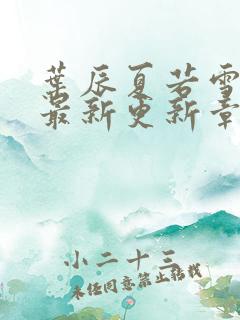 葉辰夏若雪
最新更新章
小二十三
未经同意禁止转载